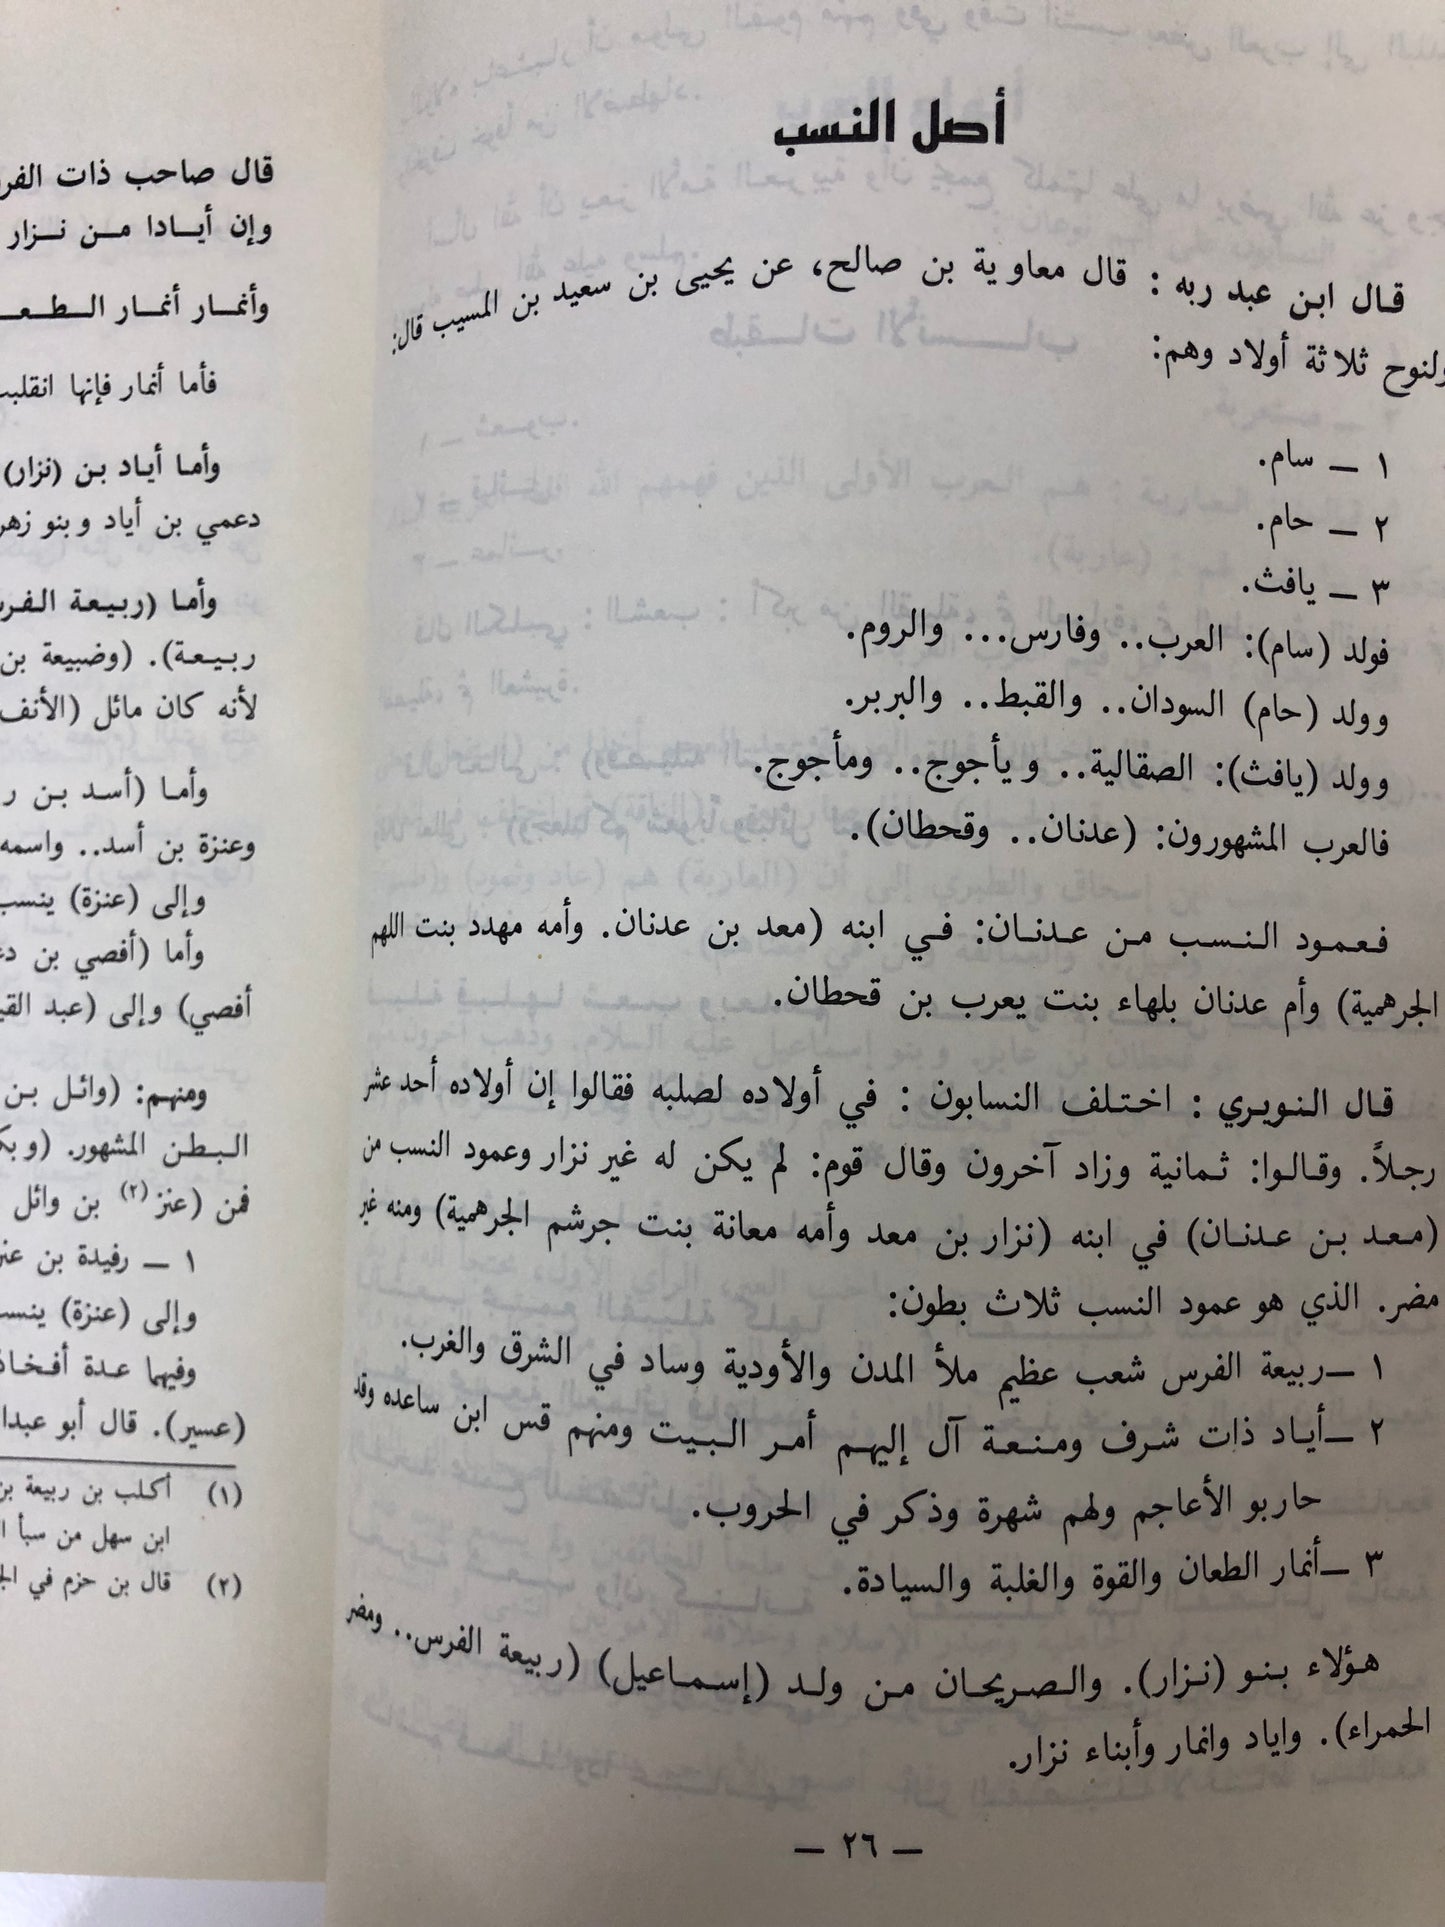 أصل النسب
قال ابن عبد ربه : قال معاوية بن صالح، عن يحيى بن سعيد بن المسيب قال:
ولنوح ثلاثة أولاد وهم:
١ ــ سام.
٢ ــ حام.
٣ ــ يافث.
فولد (سام): العرب.. وفارس... والروم.
وولد (حام) السودان.. والقبط.. والبربر.
وولد (يافث): الصقالية.. ويأجوج.. ومأجوج.
فالعرب المشهورون: (عدنان.. وقحطان).
فعمود النسب من عدنان: في ابنه (معد بن عدنان. وأمه مهدد بنت اللهم
الجرهمية) وأم عدنان بلهاء بنت يعرب بن قحطان.
قال النويري : اختلف النسابون : في أولاده لصلبه فقالوا إن أولاده أحد عشر
رجلاً. وقالوا: ثمانية وزاد آخرون وقال قوم: لم يكن له غير نزار وعمود النسب من
(معد بن عدنان) في ابنه (نزار بن معد وأمه معانة بنت جرشم الجرهمية) ومنه غير
مضر. الذي هو عمود النسب ثلاث بطون:
١ ــ ربيعة الفرس شعب عظيم ملأ المدن والأودية وساد في الشرق والغرب.
٢ ــ أياد ذات شرف ومنعة آل إليهم أمر البيت ومنهم قس ابن ساعده وقد
حاربو الأعاجم ولهم شهرة وذكر في الحروب.
٣ ــ أنمار الطعان والقوة والغلبة والسيادة.
هؤلاء بنو (نزار). والصريحان من ولد (إسماعيل) (ربيعة الفرس.. ومضر
الحمراء). واياد وانمار وأبناء نزار.
ــ ٢٦ ــ
قال صاحب ذات
وإن أيادا من نزار
وأنمار أنمار
فأما أنمار فإنها
وأما أياد بن (نزار)
دعمي بن أياد وبنو
وأما (ربيعة
ربيعة). (وضبيعة بن
لأنه كان مائل (الأنف
وأما (أسد بن
وعنزة بن أسد.. واسمه
وإلى (عنزة)
وأما (أفصي بن
أفصي) وإلى (عبد
ومنهم: (وائل بن
البطن المشهور.
فمن (عنز (٢) بن وائل
١ ــ رفيدة بن
وإلى (عنزة)
وفيها عدة
(عسير). قال أبو
(١) أكلب بن ربيعة
ابن سهل من سبأ
(٢) قال بن حزم في